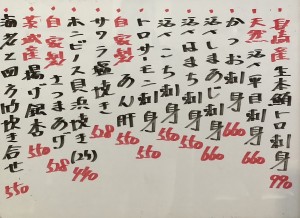 長崎産 生本鮪トロ刺身 990
天然 活〆平目刺身 660
かつお刺身 660
活〆しまあじ刺身 660
活〆はまち刺身 550
活〆こち刺身 550
トロサーモン刺身 550
自家製 あん肝 550
サワラ塩焼き 528
ホンビノス貝浜焼き(2ヶ) 440
自家製 さつまあげ 528
茨城産 揚げ銀杏 550
海老と四方竹炊き合せ 550